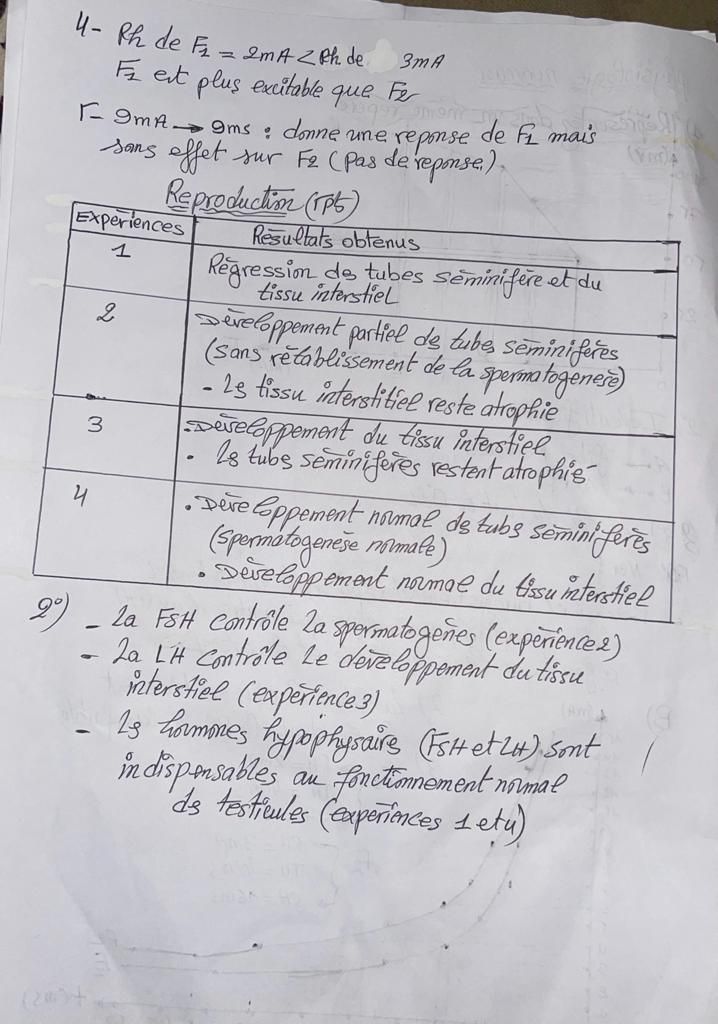 4- Rh de F1 = 2mA < Rh de 3mA
F1 est plus excitable que F2
5- 9mA → 9ms : donne une reponse de F1 mais
sans effet sur F2 (pas de reponse).
Reproduction (5pts)
Expériences Résultats obtenus
1 Régression des tubes séminifère et du
tissu interstiel
2 Développement partiel des tubes séminifères
(sans rétablissement de la spermatogenèse)
- Les tissu interstitiel reste atrophie
3 . Développement du tissu interstiel
. Les tubes séminifères restent atrophiés
4 . Développement normal des tubes séminifères
(spermatogenèse normale)
. Développement normal du tissu interstiel
2°) - La FSH contrôle La spermatogénes (expérience 2)
- La LH contrôle Le développement du tissu
interstiel (expérience 3)
- Les hormones hypophysaire (FSH et LH) sont
indispensables au fonctionnement normal
des testicules (expériences 1 et 4)